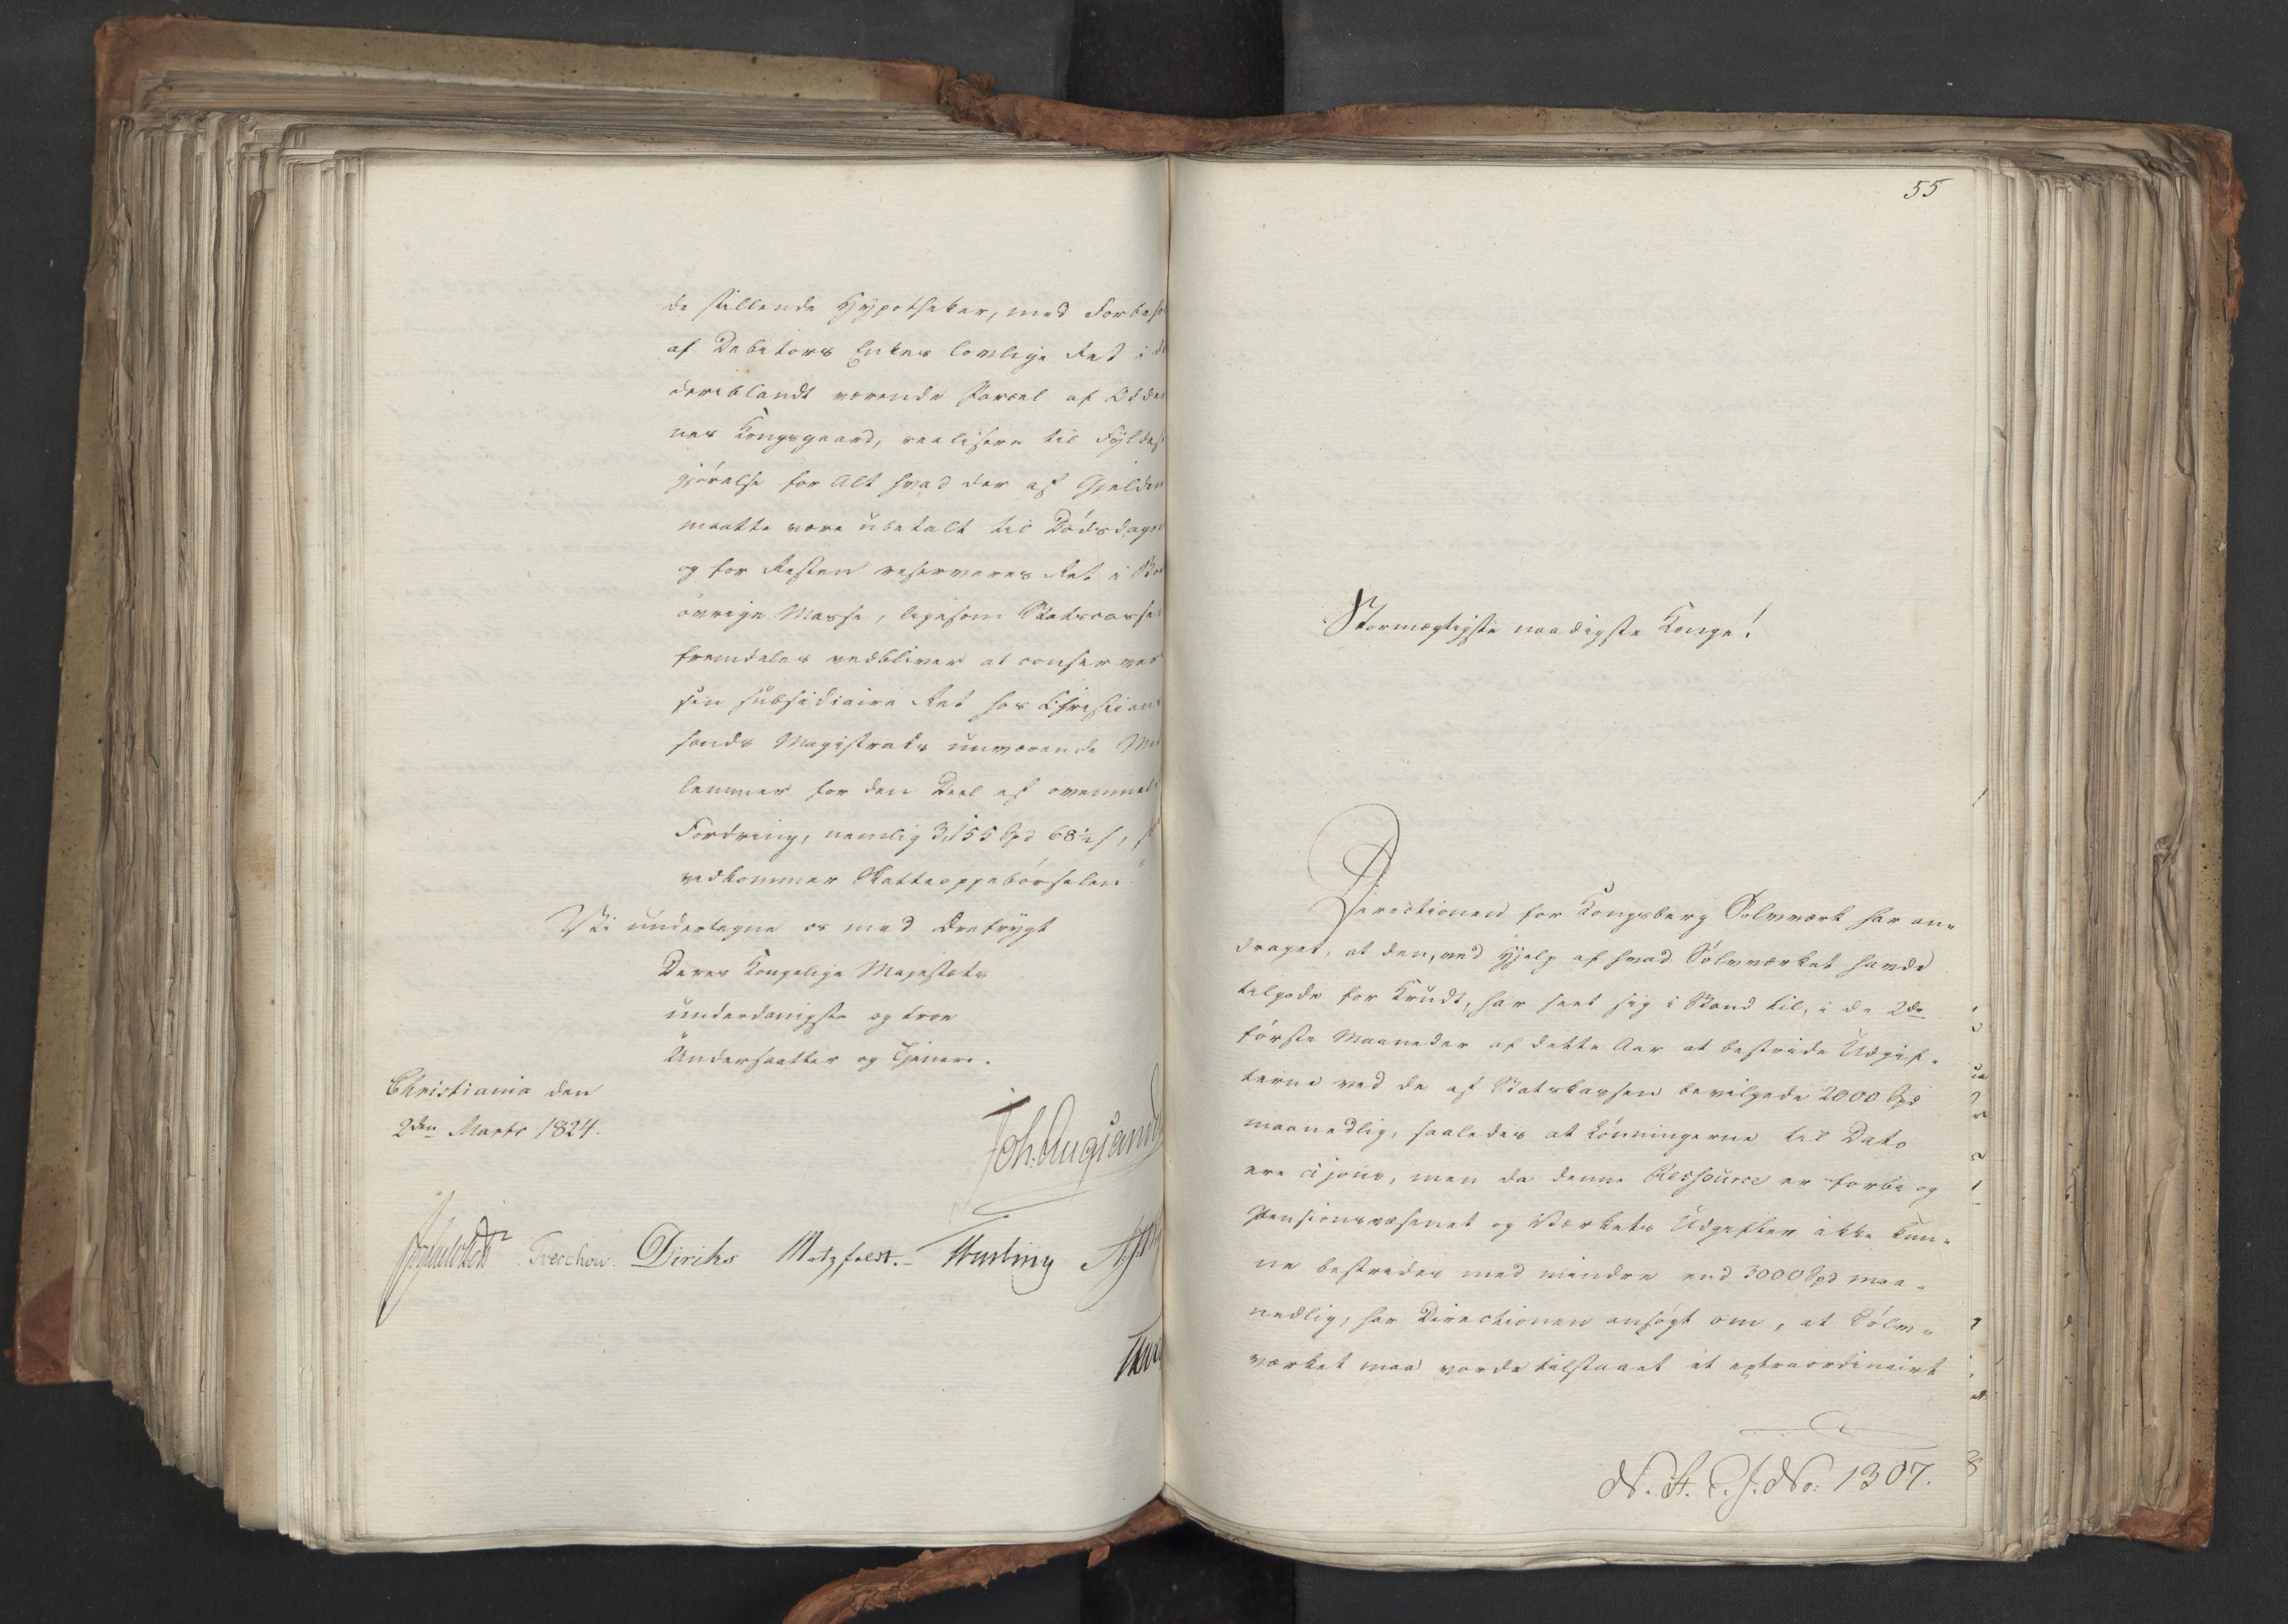 de stillende Hypotheker, med Forbeho
af Debitors Enkes lovlige Ret i de
deriblandt værende Parcel af Odder
nes Kongsgaard, realisere til Fyldest
gjørelse for Alt hvad der af Gjelden
maatte være ubetalt til Dødsdagen
og for Resten reserveres Ret i Boe
øvrige Masse, ligesom Statscassen
fremdeles vedbliver at conserver
sin subsidiaire Ret hos Christian
sands Magistrats nuværende Me
lemmer for den Deel af ovenmel
Fordring, nemlig 3,155 Spd 68½ s,
vedkommer Skatteoppebørselen."
Vi undertegne os med Dreftygt
Deres Kongelige Majestæts
underdanigste og troe
Undersaatter og Tjenere.
Christiania den
2den Marts 1824.
Joh. Aug Sand
Treschow. Diriks Motzfeldt.
55
Stormægtigste naadigste Konge!
Directionen for Kongsberg Sølvværk har an-
draget, at den, ved Hjelp af hvad Sølvværket havde
tilgode for Krudt, har seet sig i Stand til, i de 2de
første Maaneder af dette Aar at bestride Udgif-
terne ved de af Statskassen bevilgede 2000 Spd
maanedlig, saaledes at Lønningerne til Dato
ere ajour, men da denne Ressource er forbi og
Pensionsvæsenet og Værkets Udgifter ikke kun-
ne bestrides med mindre end 3000 Spd maa-
nedlig, har Directionen ansøgt om, at Sølv-
værket maa vorde tilstaaet et extraordinairt
No. 1307.